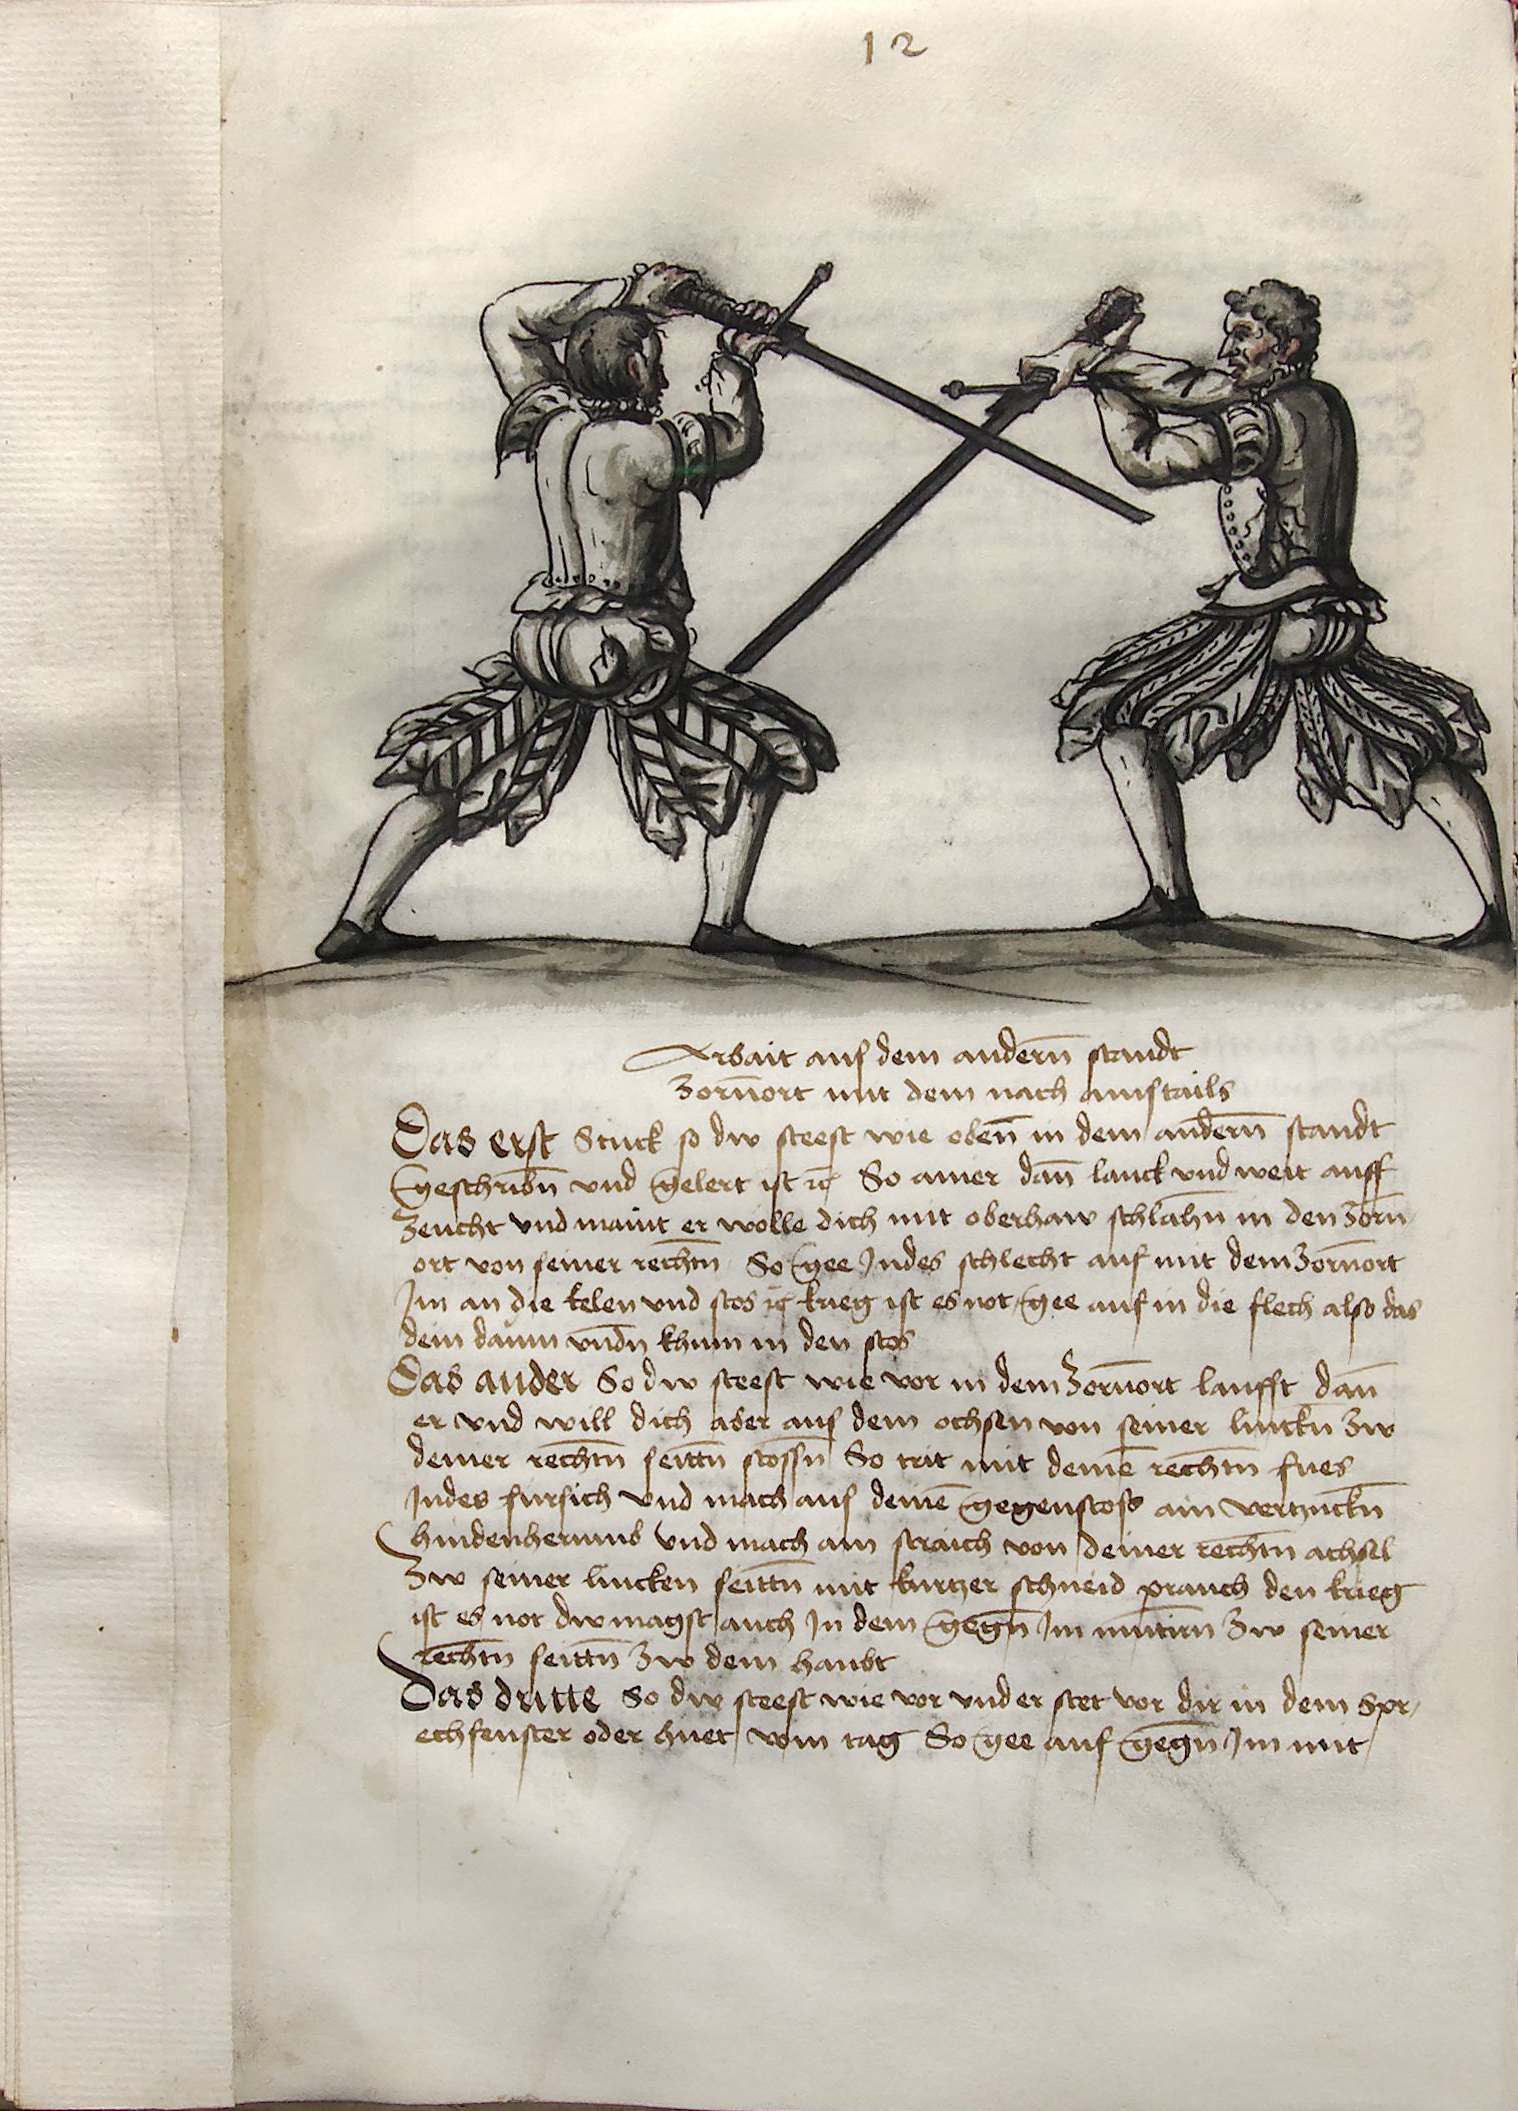 12
Arbait aus dem andern̄ standt
Zorn̄ort mit dem nach austails
Das erst Stuck so dw steest wie oben̄ in dem andern̄ standt
geschribn̄ vnd gelert ist ꝛc̄ So ainer dan̄ lanck vnd weit auff
Zeucht vnd maint er wolle dich mit oberhaw schlahn̄ in den Zorn̄
ort von seiner rechtn̄ So gee Indes schlecht auf mit dem Zorn̄ort
Im an die kelen vnd stos ꝛc̄ krieg ist es not gee auf in die flech also das
dein daum vndn̄ khum in den stos
Das ander So dw steest wie vor in dem Zorn̄ort laufft dan̄
er vnd will dich aber aus dem ochsen von seiner linckn̄ Zw
deiner rechtn̄ seittn̄ stossn̄ So trit mit deinē rechtn̄ fues
Indes fursich vnd mach aus deinē gegenstoss ain vertzuckn̄
hindenherumb vnd mach ain straich von deiner rechtn̄ achsel
Zw seiner lincken seittn̄ mit kurtzer schneid prauch den krieg
ist es not dw magst auch In dem gegn̄ Im mutirn̄ Zw seiner
rechtn̄ seittn̄ Zw dem haubt
Das dritte So dw steest wie vor vnd er stet vor dir in dem Spr
echfenster oder huet vom tag So gee auf gegn̄ Im mit